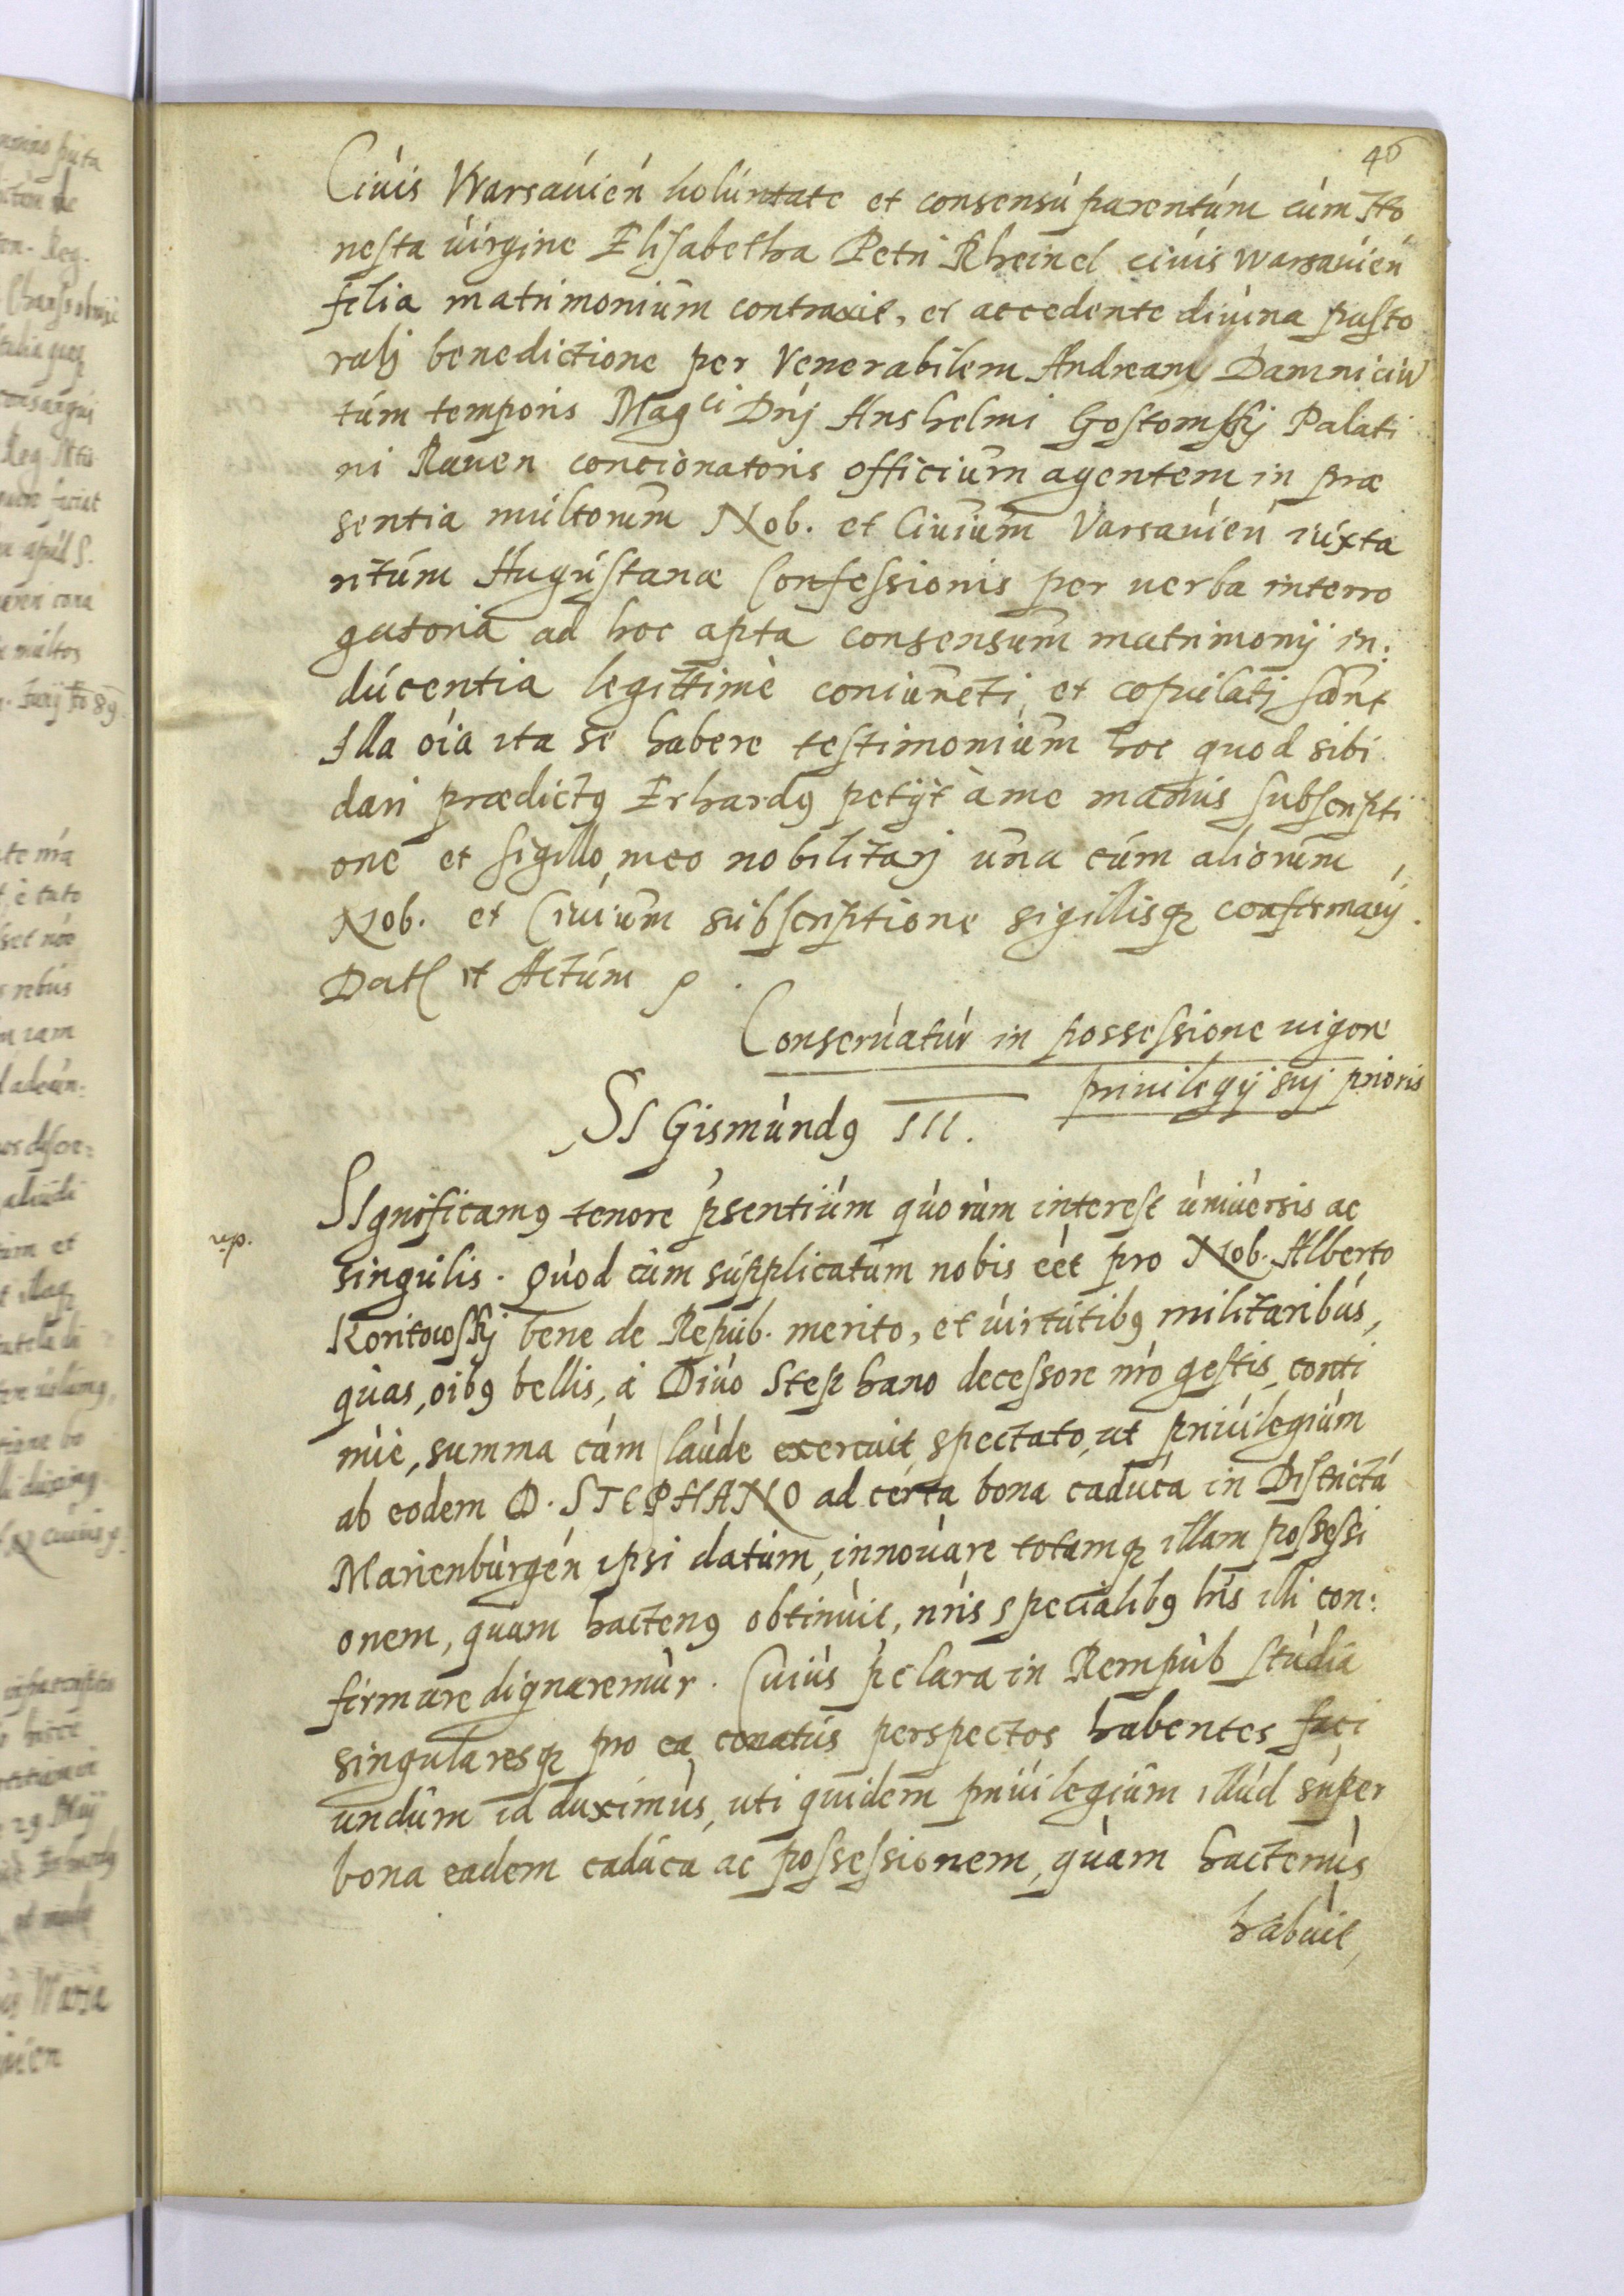 46
Ciuis Warsauien uoluntate et consensu parentum cum Ho
nesta uirgine Elisabetha Petri Rheinel ciuis warsauien
filia matrimonium contraxit, et accedente diuina pasto
ralj benedictione per Venerabilem Andream Damniciu
tum temporis Magci Dnj Anshelmi Gostomskj Palati
ni Rauen concionatoris officium agentem in præ
sentia multorum Nob. et Ciuium Varsauien iuxta
ritum Augustanæ Confessionis per uerba interro
gatoria ad hoc apta consensum matrimonij in:
ducentia legittimè coniuncti et copulatj sunt
Illa oia ita se habere testimonium hoc quod sibi
dari prædictꝯ Erhardꝯ petijt à me manus subscripti
one et sigillo meo nobilitarj una cum aliorum
Nob. et Ciuium subscriptione sigillisqꝫ confirmauj.
Dat et Actum
Conseruatur in possessione uigore
priuilegij suj prioris
SIGismundꝯ III.
SIgnificamꝯ tenore pṡentium quorum interest uniuersis ac
singulis. Quod cum supplicatum nobis eet pro Nob. Alberto
Koritowskj bene de Repub. merito, et uirtutibꝯ militaribus,
quas, oibꝯ bellis, à Diuo Stephano decessore nro gestis, conti
nuè, summa cum laude exercuit, spectato, ut priuilegium
ab eodem D. STEPHANO ad certa bona caduca in Districtu
Marienburgen ipsi datum, innouare totamqꝫ illam possessi
onem, quam hactenꝯ obtinuit, nris specialibꝯ lris illi con:
firmare dignaremur. Cuius pclara in Rempub studia
singularesqꝫ pro ea conatus perspectos habentes faci
undum id duximus, uti quidem priuilegium illud super
bona eadem caduca ac possessionem, quam hactenus
habuit,